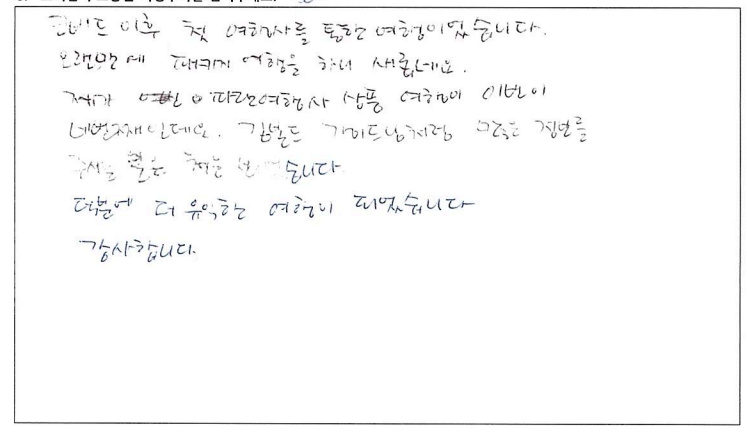 코비드 이후 첫 여행사를 통한 여행이었습니다.
오랜만에 패키지 여행을 하니 새롭네요.
제가 여행사 상품 여행이 이번이
네번째인데요. 가이드님처럼 정보를
주시는 분은 처음 습니다
덕분에 더 유익한 여행이 되었습니다
감사합니다.